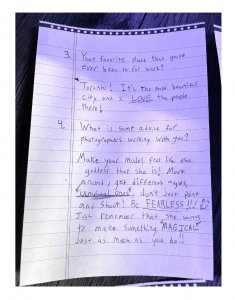 3. Your favorite place that you've
ever been to for work?
Toronto! It's the most beautiful
City and I LOVE the people
there!
4. What is some advice for
photographers working with you?
Make your model feel like the
goddess that she is! Move
around, get different angles,
"unusual ones", don't just point
and shoot! Be FEARLESS!!!
Just remember that she wants
to make something "MAGICAL"
Just as much as you do!!